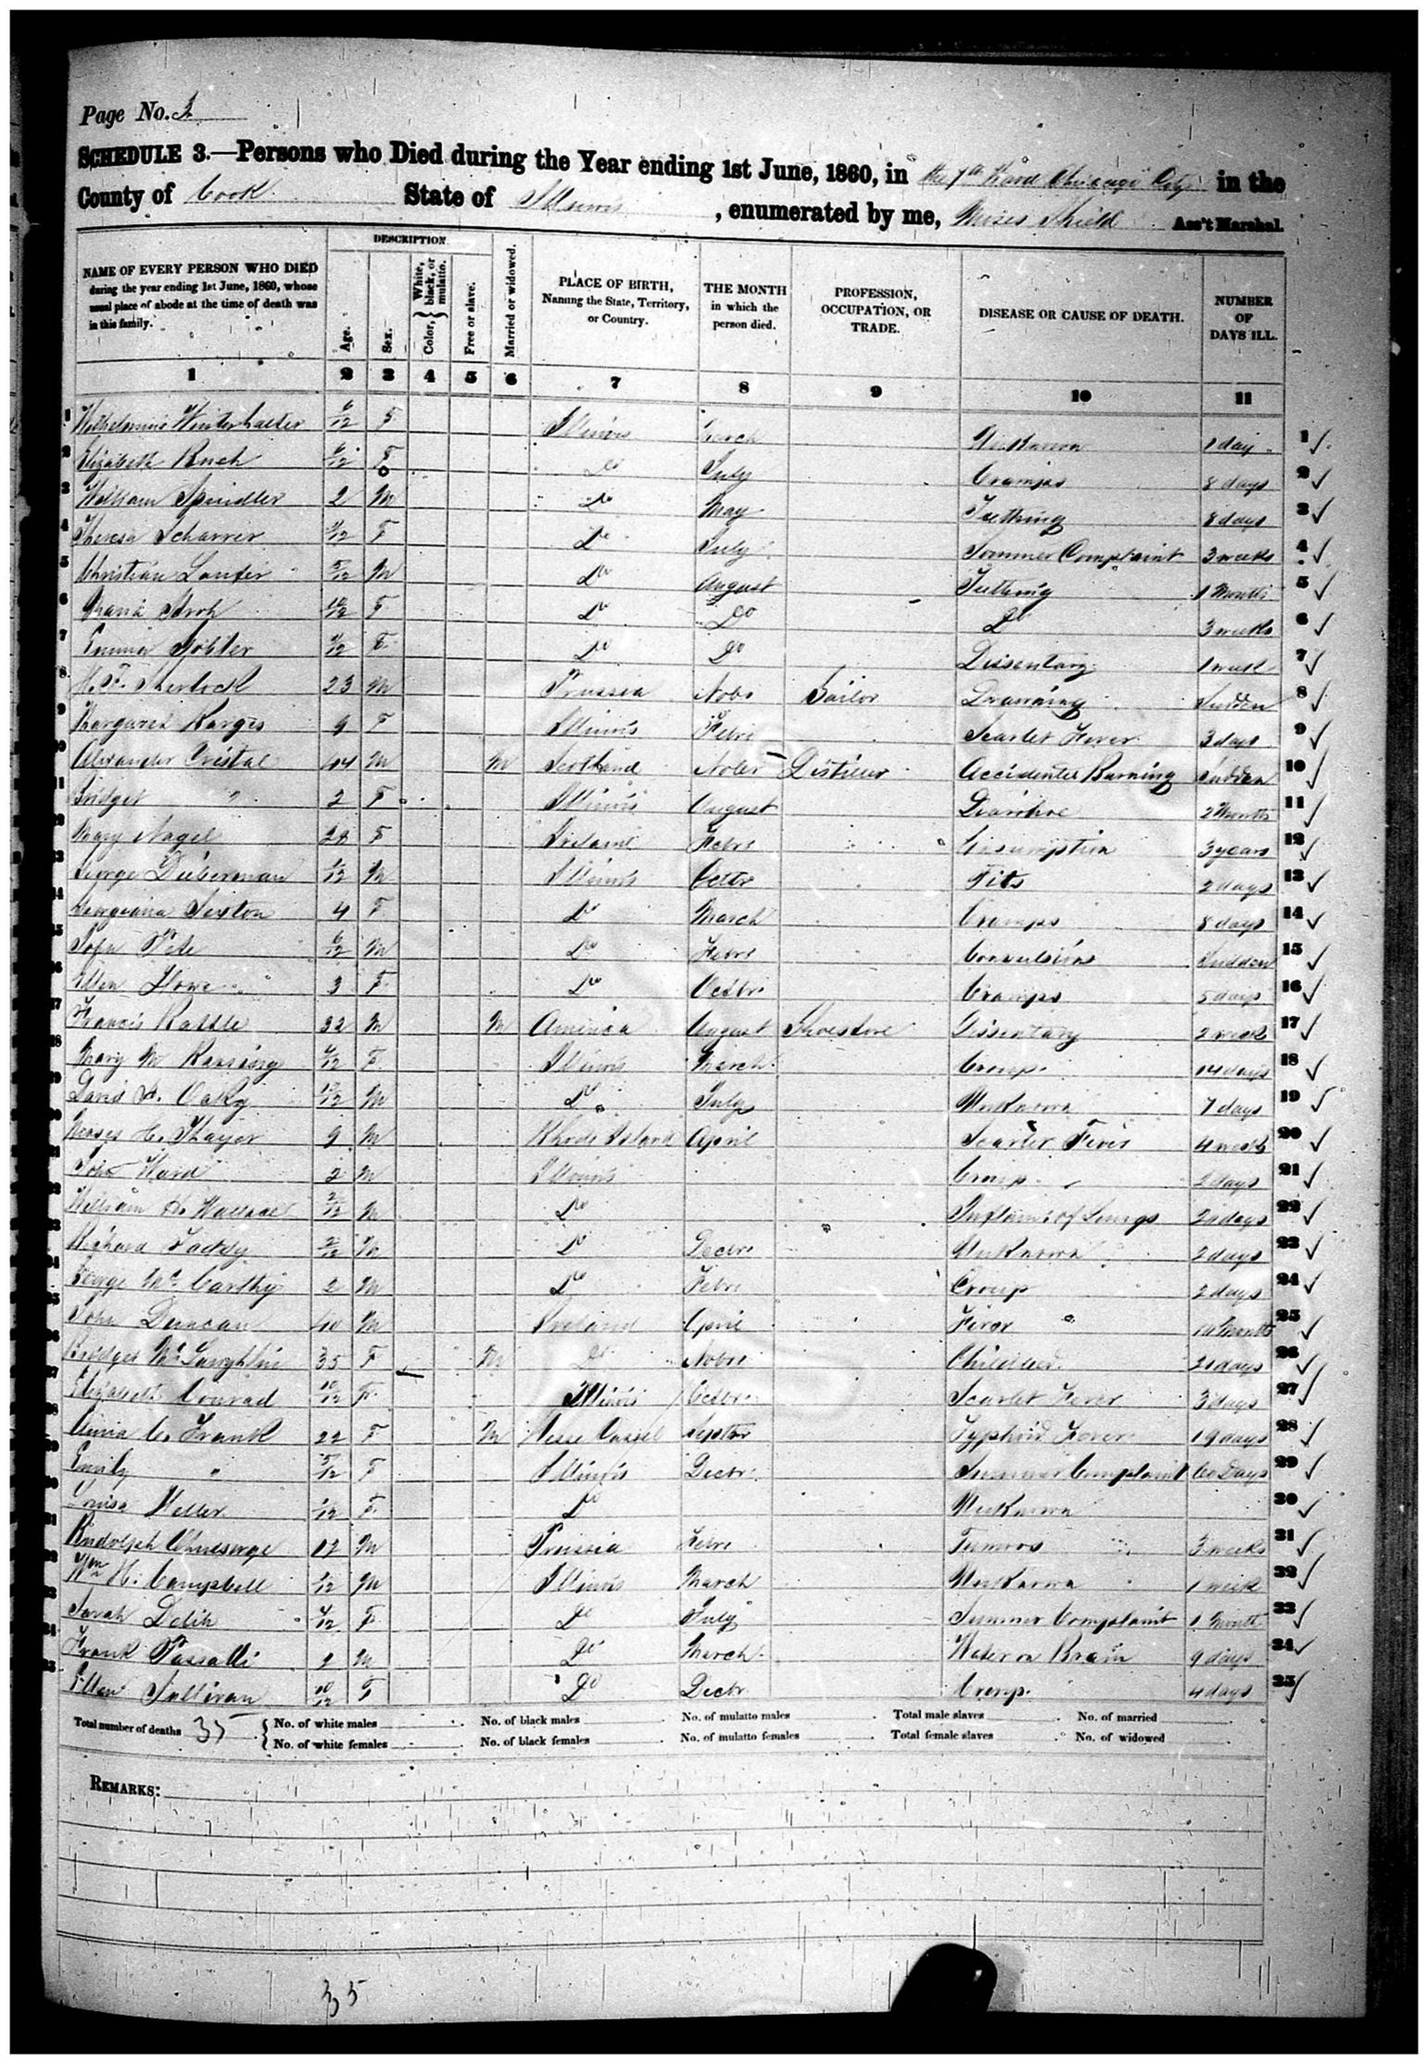 Page No. 3
SCHEDULE 3.—Persons who Died during the Year ending 1st June, 1860, in the 7th Ward Chicago City in the
County of Cook State of Illinois, enumerated by me, Moses Shield Ass't Marshal.
NAME OF EVERY PERSON WHO DIED during the year ending 1st June, 1860, whose usual place of abode at the time of death was in this family.
DESCRIPTION.
Age. Sex. Color, { White, black, or mulatto. Free or slave. Married or widowed.
PLACE OF BIRTH, Naming the State, Territory, or Country.
THE MONTH in which the person died.
PROFESSION, OCCUPATION, OR TRADE.
DISEASE OR CAUSE OF DEATH.
NUMBER OF DAYS ILL.
1 2 3 4 5 6 7 8 9 10 11
1 Winterhalter /12 F Illinois March Unknown 1 day 1
2 Elizabeth Ruch /12 F Do July Cramps 8 days 2
3 William Spindler 2 M Do May Teething 8 days 3
4 Theresa Scharrer /12 F Do July Sommer Complaint 3 weeks 4
5 Christian /12 M Do August Teething 1 Month 5
6 /12 F Do Do Do 3 weeks 6
7 Emma /12 F Do Do Dissentary 1 week 7
8 H. F. 23 M Prussia Nobr Sailor Drowning Sudden 8
9 Margaret Karges 9 F Illinois Febr Scarlet Fever 3 days 9
10 Alexander Cristal 44 M M Scotland Nobr Distiller Accidental Burning Sudden 10
11 Bridget " 2 F Illinois August Diarrhoe 2 Months 11
12 Mary Nagel 28 F Ireland Febr Consumption 3 years 12
13 George Dieberman /12 M Illinois Octbr Fits 2 days 13
14 Georgiana Sexton 4 F Do March Cramps 8 days 14
15 /12 M Do Febr Convulsions Sudden 15
16 Ellen Howe 3 F Do Octbr Cramps 5 days 16
17 Francis Rattle 32 M M America August Dissentary 2 week 17
18 Mary M /12 F Illinois March Croup 14 days 18
19 David Oaky /12 M Do July Unknown 7 days 19
20 Moses C. Thayer 9 M Rhode Island April Scarlet Fever 4 weeks 20
21 John Ward 2 M Illinois Croup 2 days 21
22 William H. Wallace /12 M Do Inflam: of Lungs days 22
23 Richard Faddy /12 M Do Decbr Unknown 2 days 23
24 George McCarthy 2 M Do Febr Croup 2 days 24
25 John Duncan 40 M Ireland April Fever Months 25
26 Bridget McLaughlin 35 F M Do Nobr Childbed 21 days 26
27 Elizabeth Conrad 10/12 F Illinois Octbr Scarlet Fever 3 days 27
28 C. Frank 22 F M Hesse Cassel Septbr Typhoid Fever 19 days 28
29 Emily " 5/12 F Illinois Decbr Summer Complaint 60 Days 29
30 Louisa /12 F Do Unknown 30
31 Rudolph 12 M Prussia Febr 3 weeks 31
32 Wm H. Campbell /12 M Illinois March Unknown 1 week 32
33 Sarah /12 F Do July Summer Complaint 1 Month 33
34 Frank 2 M Do March Water on Brain 9 days 34
35 Ellen Sullivan 10/12 F Do Decbr Croup 4 days 35
Total number of deaths 35 { No. of white males No. of black males No. of mulatto males Total male slaves No. of married
No. of white females No. of black females No. of mulatto females Total female slaves No. of widowed
REMARKS:
35